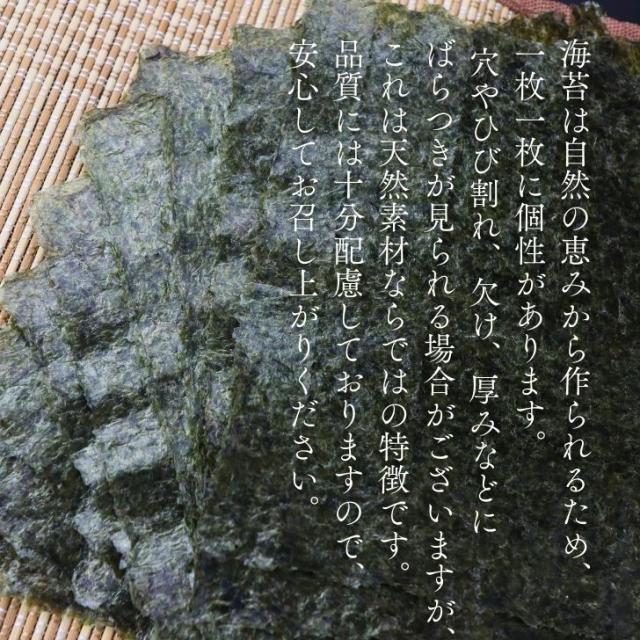 海苔は自然の恵みから作られるため、
一枚一枚に個性があります。
穴やひび割れ、欠け、厚みなどに
ばらつきが見られる場合がございますが、
これは天然素材ならではの特徴です。
品質には十分配慮しておりますので、
安心してお召し上がりください。